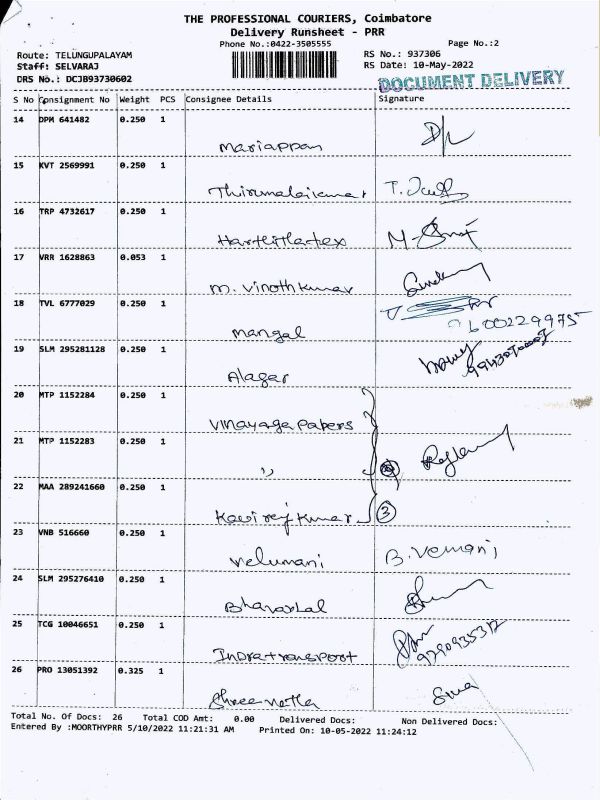 THE PROFESSIONAL COURIERS, Coimbatore
Delivery Runsheet - PRR
Phone No.:0422-3505555
Page No.:2
Route: TELUNGUPALAYAM
RS No.: 937306
Staff: SELVARAJ
RS Date: 10-May-2022
DRS No.: DCJB93730602
DOCUMENT DELIVERY
S No Consignment No Weight PCS Consignee Details Signature
14 DPM 641482 0.250 1
Mariappan
15 KVT 2569991 0.250 1
Thirumalaikumar T.
16 TRP 4732617 0.250 1
17 VRR 1628863 0.053 1
M. Vinothkumar
18 TVL 6777029 0.250 1
Mangal
19 SLM 295281128 0.250 1
Alagar
20 MTP 1152284 0.250 1
Vinayaga Papers
21 MTP 1152283 0.250 1
,,
22 MAA 289241660 0.250 1
Kavirajkumar 3
23 VNB 516660 0.250 1
Velumani B. Vemani
24 SLM 295276410 0.250 1
25 TCG 10046651 0.250 1
Indratransport
26 PRO 13051392 0.325 1
Total No. Of Docs: 26 Total COD Amt: 0.00 Delivered Docs: Non Delivered Docs:
Entered By :MOORTHYPRR 5/10/2022 11:21:31 AM Printed On: 10-05-2022 11:24:12